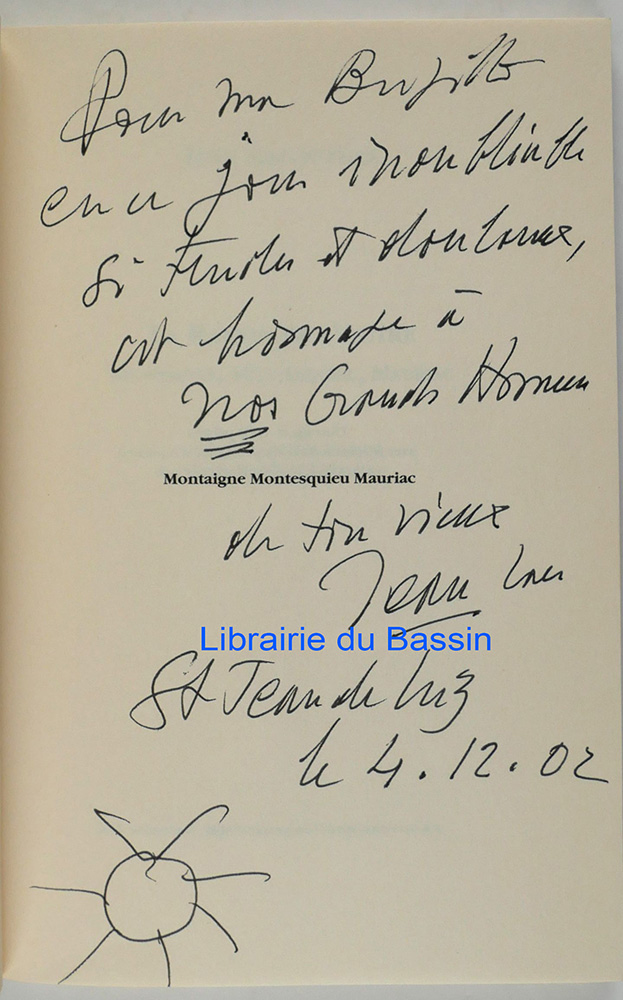 Pour ma Brigitte
en ce jour inoubliable
si tendre et douloureux,
cet hommage à
nos Grands Hommes
Montaigne Montesquieu Mauriac
de ton vieux
Jean
Librairie du Bassin
St Jean de Luz
le 4.12.02